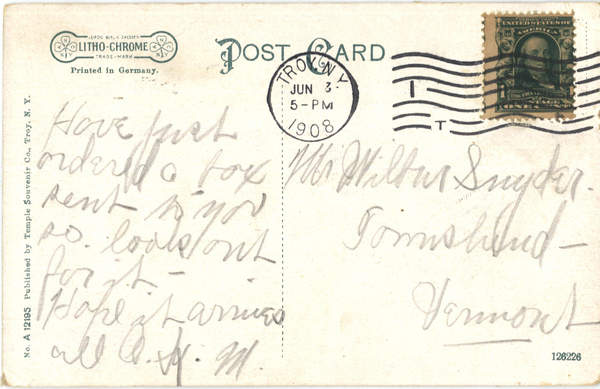 LITHO-CHROME
TRADE-MARK
Printed in Germany.
POST CARD
TROY, N.Y.
JUN 3
5-PM
1908
1
T
UNITED STATES OF
AMERICA
No. A 12195 Published by Temple Souvenir Co., Troy, N. Y.
Have just
ordered a box
sent to you
so look out
for it –
Hope it arrives
all O.K. M.
Mr Wilbur Snyder.
Townshend –
Vermont
126226